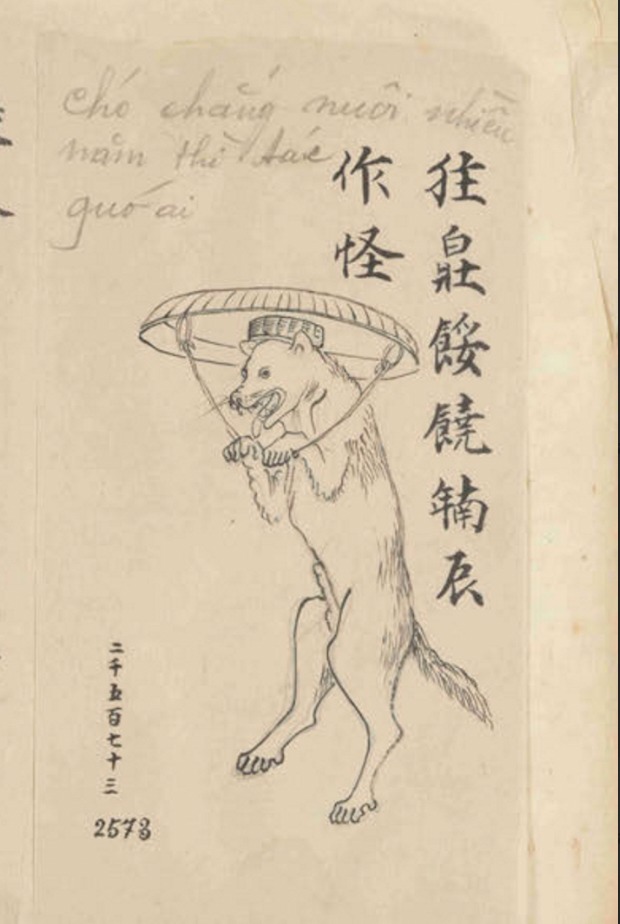 chó chắng nuôi nhiều
năm thì tác
quó ai
㹥𤽸餒饒𢆥辰
作怪
二千五百七十三
2573